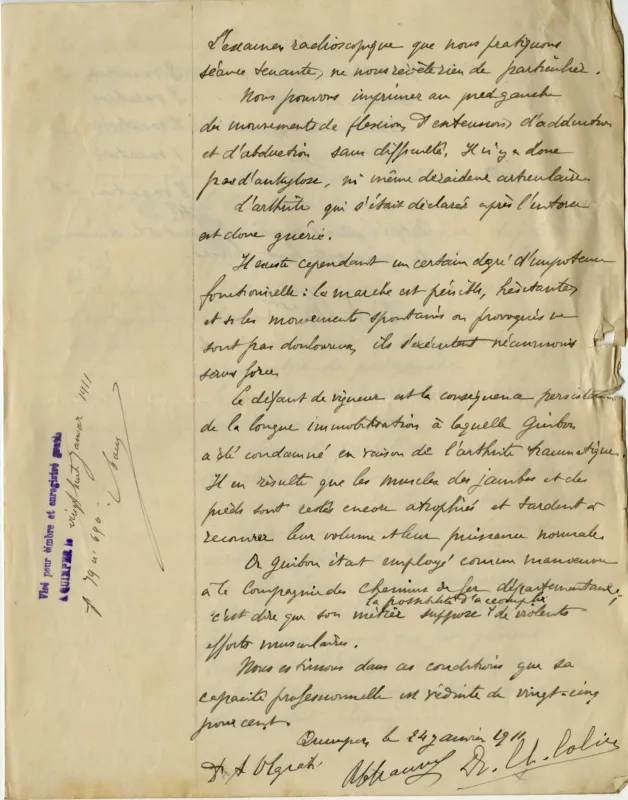 L'examen radioscopique que nous pratiquons
séance tenante, ne nous révèle rien de particulier.
Nous pouvons imprimer au pied gauche
des mouvements de flexion, d'extension, d'adduction
et d'abduction sans difficulté. Il n'y a donc
pas d'ankylose, ni même de raideur articulaire.
L'arthrite qui s'était déclarée après l'entorse
est donc guérie.
Il existe cependant un certain degré d'impotence
fonctionnelle : la marche est pénible, hésitante,
et si les mouvements spontanés ou provoqués ne
sont pas douloureux, ils s'exécutent néanmoins
sans force.
Ce défaut de vigueur est la conséquence persistante
de la longue immobilisation à laquelle Guibon
a été condamné en raison de l'arthrite traumatique.
Il en résulte que les muscles des jambes et des
pieds sont restés encore atrophiés et tardent à
recouvrer leur volume et leur puissance normale.
Or Guibon était employé comme manoeuvre
à la Compagnie des Chemins de fer départementaux ;
la possibilité d'accomplir
c'est dire que son métier suppose de violents
efforts musculaires.
Nous estimons dans ces conditions que sa
capacité professionnelle est réduite de vingt-cinq
pour cent.
Quimper, le 24 janvier 1911
Dr A
Dr. Ch. Colin
Visé pour timbre et enregistré gratis
A QUIMPER le vingt huit janvier 1911
f° 79 n° 696